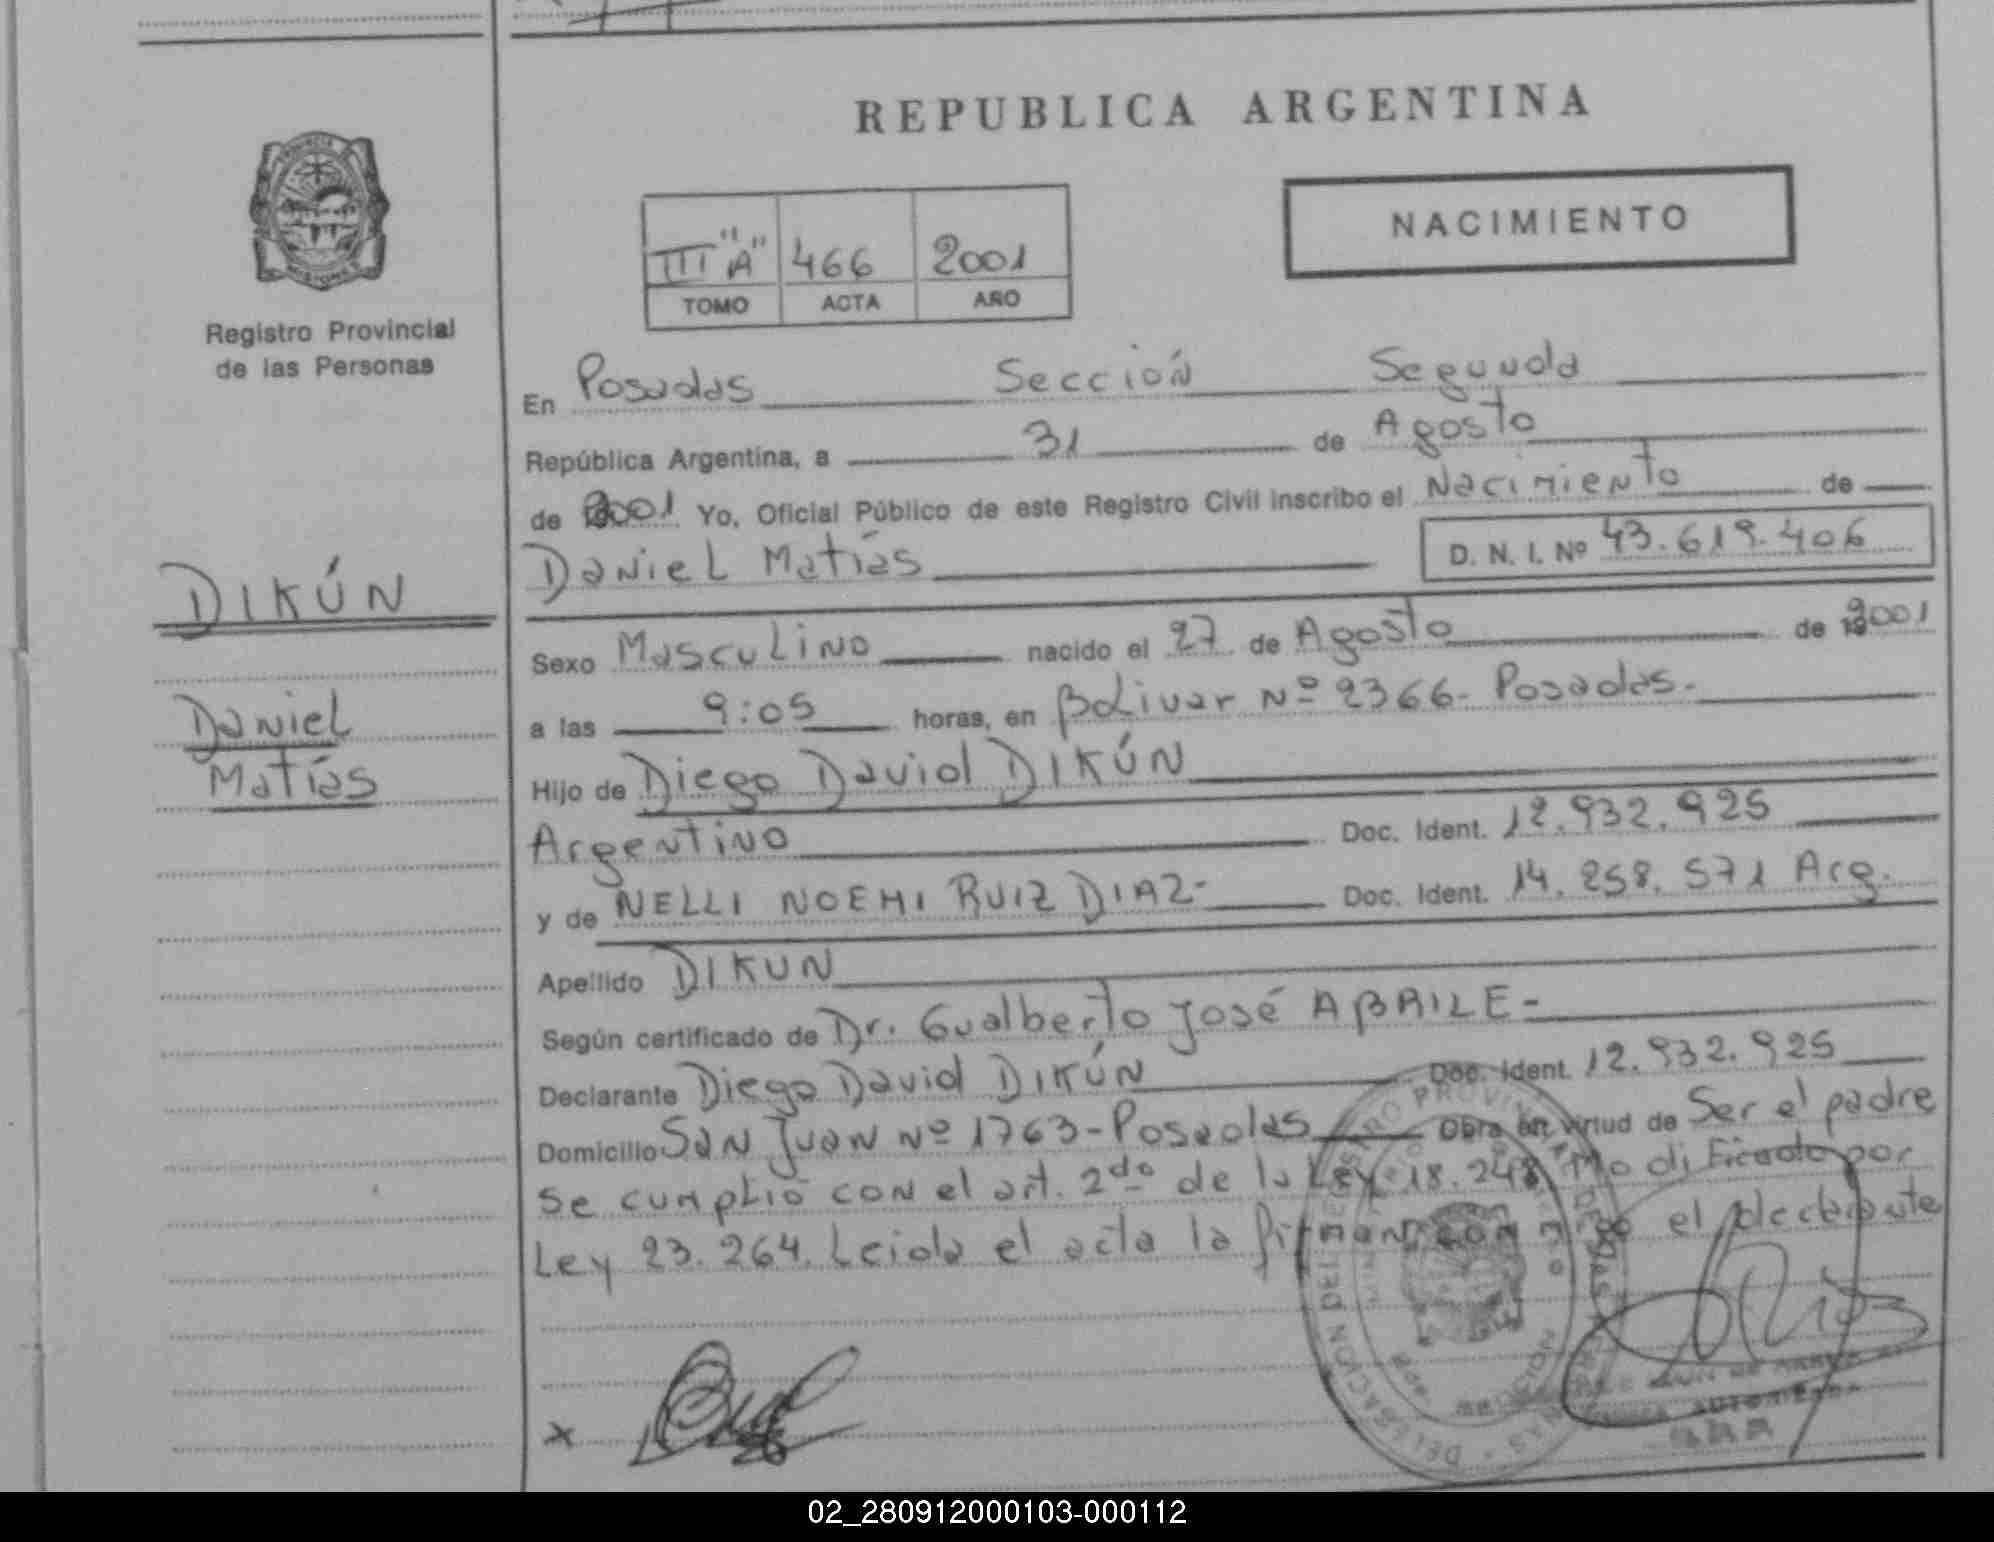 REPUBLICA ARGENTINA
NACIMIENTO
III "A" 466 2001
TOMO ACTA AÑO
PROVINCIA
MISIONES
Registro Provincial
de las Personas
En Posadas Sección Segunda
República Argentina, a 31 de Agosto
de 2001 Yo, Oficial Público de este Registro Civil inscribo el Nacimiento de
Daniel Matías D. N. I. Nº 43.619.406
DIKÚN
Daniel
Matías
Sexo Masculino nacido el 27 de Agosto de 2001
a las 9:05 horas, en Bolivar Nº 2366- Posadas-
Hijo de Diego David DIKÚN
Argentino Doc. Ident. 12.932.925
y de NELLI NOEMI RUIZ DIAZ- Doc. Ident. 14.258.571 Arg.
Apellido DIKUN
Según certificado de Dr. Gualberto José ABRILE-
Declarante Diego David DIKÚN Doc. Ident. 12.932.925
Domicilio San Juan Nº 1763-Posadas Obra en virtud de Ser el padre
Se cumplió con el art. 2do de la Ley 18.248 Modificado por
Ley 23.264. Leida el acta la firman con migo el declarante
x
02_280912000103-000112